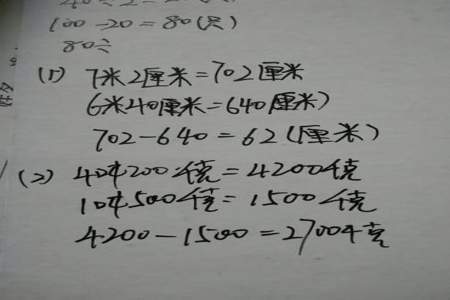 40÷2=20(只)
100-20=80(只)
80÷
(1) 7米2厘米=702厘米
6米40厘米=640厘米)
702-640=62(厘米)
(2) 4吨200千克=4200千克
1吨500千克=1500千克
4200-1500=2700千克